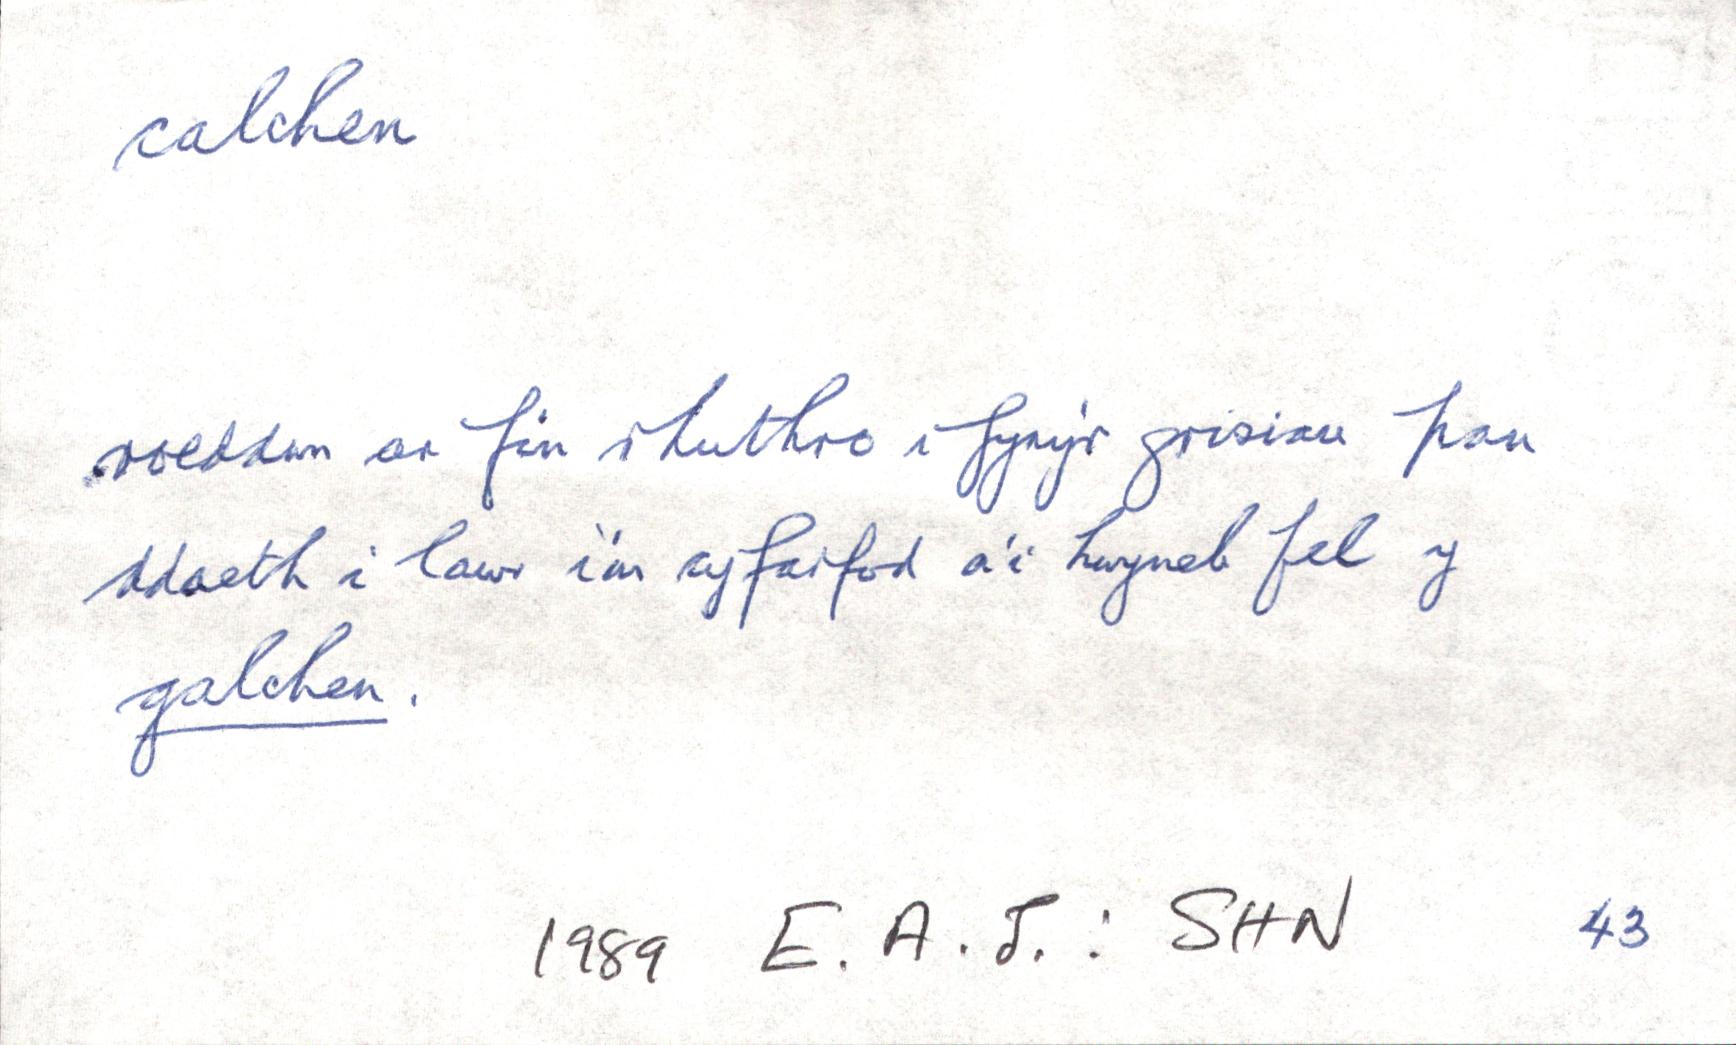 calchen
roeddwn ar fin rhuthro i fyny'r grisiau pan
ddaeth i lawr i'm cyfarfod a'i hwyneb fel y
galchen.
1989 E.A.J.: SHN 43